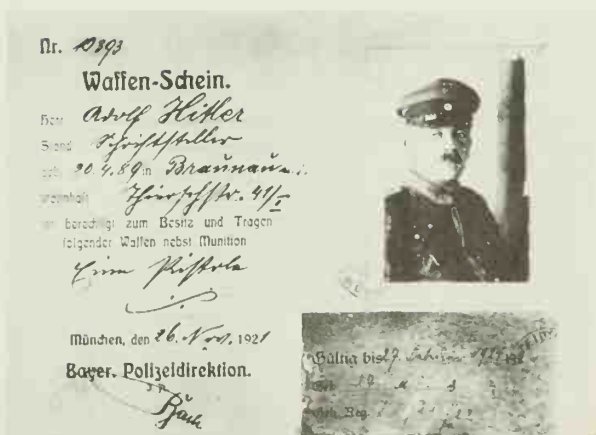 Nr. 10393
Waffen-Schein.
Herr Adolf Hitler
Stand Schriftsteller
geb. 20.4.89 in Braunau
wohnhaft Thierschstr. 41/I
ist berechtigt zum Besitz und Tragen
folgender Waffen nebst Munition
Eine Pistole
München, den 26. Nov. 1921
Bayer. Polizeidirektion.
Gültig bis 27.